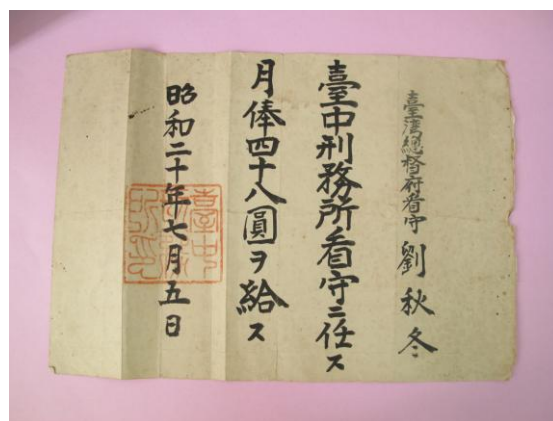 臺灣總督府看守 劉秋冬
臺中刑務所看守ニ任ス
月俸四十八圓ヲ給ス
昭和二十年七月五日